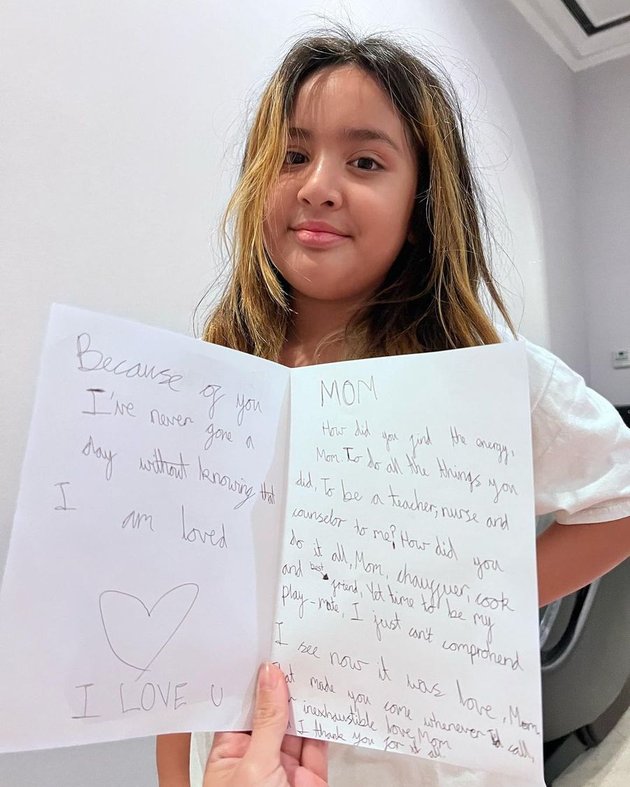 Because of you
I've never gone a
day without knowing that
I am loved
I LOVE U
MOM
How did you find the energy,
Mom. To do all the things you
did, To be a teacher, nurse and
counselor to me? How did you
do it all, Mom, chauguer, cook
and best friend, Yet time to be my
play-mate, I just can't comprehend
I see now it was love, Mom
that made you come whenever I'd call,
inexhaustible love, Mom
I thank you for it all